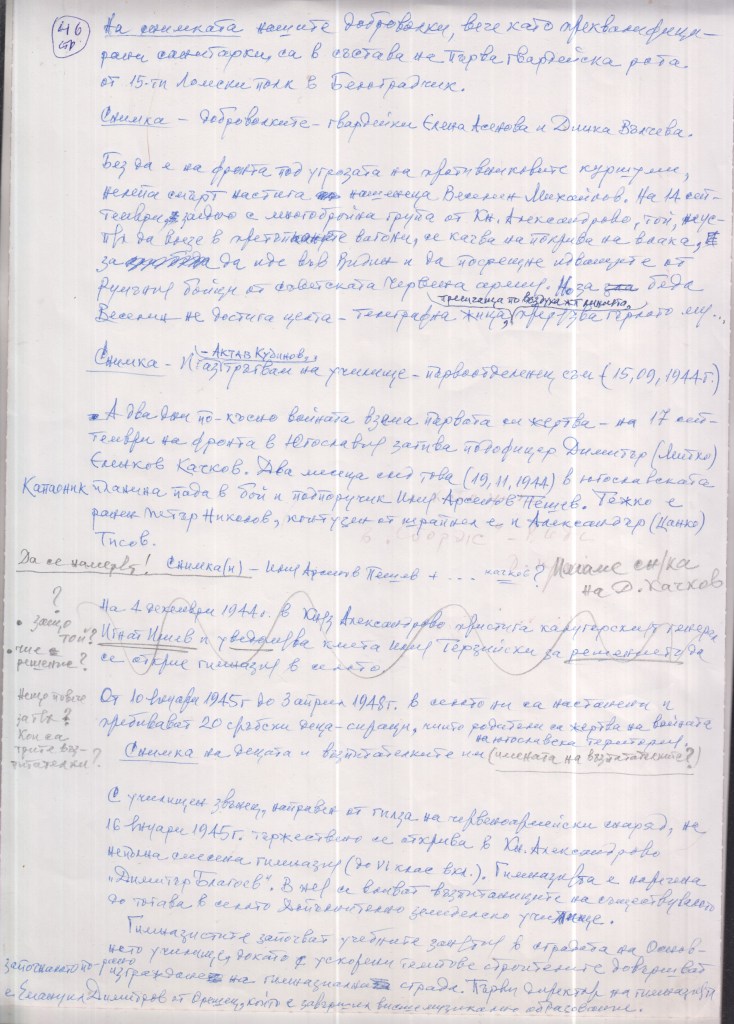 46
стр
На снимката нашите доброволки, вече като преквалифици-
рани санитарки, са в състава на Първа гвардейска рота
от 15-ти Ломски полк в Белоградчик.
Снимка – доброволките – гвардейки Елена Асенова и Динка Вълчева.
Без да е на фронта под угрозата на противниковите куршуми,
нелепа смърт настига нашенеца Веселин Михайлов. На 14 сеп-
тември, заедно с многобройна група от Кн. Александрово, той, неус-
пял да влезе в претъпканите вагони, се качва на покрива на влака,
за да иде във Видин и да посрещне идващите от
Румъния бойци от съветската Червена армия. Но за беда
Веселин не достига целта – телеграфна жица, прерязва гърлото му...
Снимка – И
– Актив Кубинов,
на училище – първоотделенец съм (15,09,1944г.)
А два дни по-късно войната взема първата си жертва – на 17 сеп-
тември на фронта в Югославия загива подофицер Димитър (Митко)
Еленков Качков. Два месеца след това (19,11,1944) в югославската
Капаоник планина пада в бой и подпоручик Илия Арсенов Пешев. Тежко е
ранен Петър Николов, контузен от шрапнел е и Александър (Цанко)
Тисов.
Да се намерят! Снимка(и) – Илия Арсенов Пешев + ... качков? Нямаме сн/ка
на Д. Качков
?
• защо
той?
• чие е
решение?
На 4 декември 1944г. в Княз Александрово пристига
Игнат Илиев и уведомява кмета Илия Терзийски за решението да
се открие гимназия в селото.
Нещо повече
за тях?
Кои са
трите въз-
питателки?
От 10 януари 1945г до 3 април 1948г. в селото ни са настанени и
пребивават 20 сръбски деца-сираци, чиито родители са жертва на войната
на югославска територия.
Снимка на децата и възпитателките им (имената на възпитателките?)
С училищен звънец, направен от гилза на червеноармейски снаряд, на
16 януари 1945г. тържествено се открива в Кн. Александрово
непълна смесена гимназия (до VI клас вкл.). Гимназията е наречена
"Димитър Благоев". В нея се вливат възпитаниците на съществувалото
до тогава в селото Допълнително земеделско училище.
Гимназистите започват учебните занятия в сградата на Основ-
ното училище, докато с ускорени темпове строителите довършват
започналото по-рано изграждане на гимназиална сграда. Първи директор на гимназията
е Емануил Димитров от Орешец, който е завършил висше музикално образование.